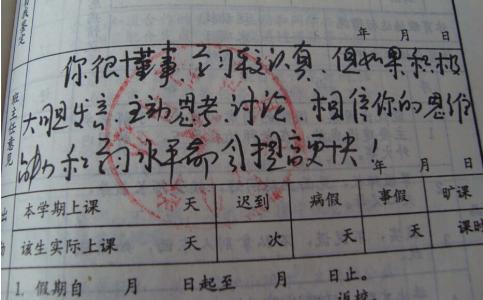 年 月 日
你很懂事，学习较认真，但如果积极
大胆发言、主动思考、讨论，相信你的思维
能力和学习水平都会提高更快！
年 月 日
班主任意见
本学期上课 天 迟到 病假 事假 旷课
该生实际上课 天 次 天 天 课时
1. 假期自 月 日起至 月 日止。